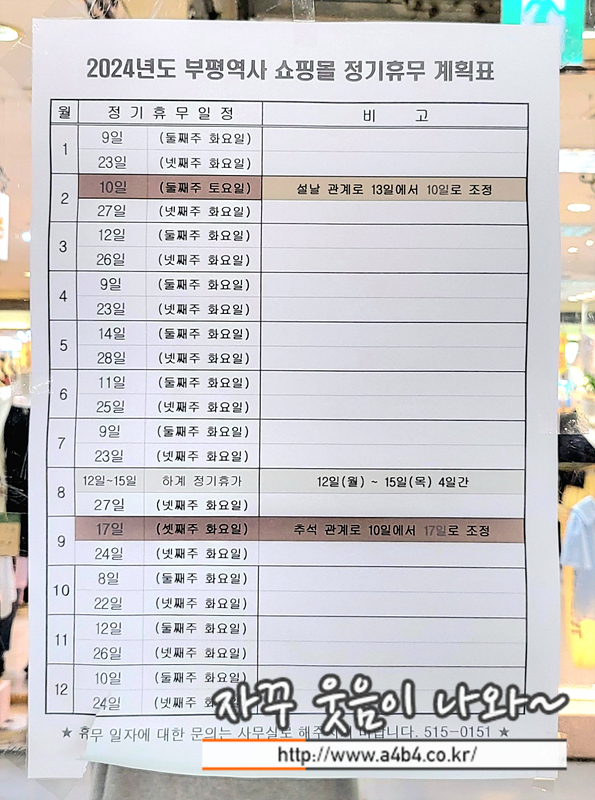 2024년도 부평역사 쇼핑몰 정기휴무 계획표
월 정기휴무일정 비 고
1 9일 (둘째주 화요일)
23일 (넷째주 화요일)
2 10일 (둘째주 토요일) 설날 관계로 13일에서 10일로 조정
27일 (넷째주 화요일)
3 12일 (둘째주 화요일)
26일 (넷째주 화요일)
4 9일 (둘째주 화요일)
23일 (넷째주 화요일)
5 14일 (둘째주 화요일)
28일 (넷째주 화요일)
6 11일 (둘째주 화요일)
25일 (넷째주 화요일)
7 9일 (둘째주 화요일)
23일 (넷째주 화요일)
8 12일~15일 하계 정기휴가 12일(월) ~ 15일(목) 4일간
27일 (넷째주 화요일)
9 17일 (셋째주 화요일) 추석 관계로 10일에서 17일로 조정
24일 (넷째주 화요일)
10 8일 (둘째주 화요일)
22일 (넷째주 화요일)
11 12일 (둘째주 화요일)
26일 (넷째주 화요일)
12 10일 (둘째주 화요일)
24일 (넷째주 화요일)
★ 휴무 일자에 대한 문의는 사무실로 해주시기 바랍니다. 515-0151 ★
자꾸 웃음이 나와~
http://www.a4b4.co.kr/